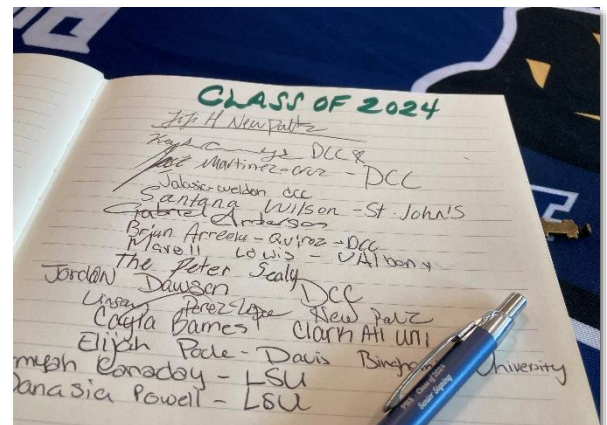 CLASS OF 2024
H New Paltz
DCC
Martinez-Cruz - DCC
weldon DCC
Santana Wilson - St. John's
Gabriel Anderson
Brian Arreola - Quiroz - DCC
Lewis - UAlbany
The Peter Sealy
Jordan Dawson DCC
Perez-Lopez New Paltz
Cayla Barnes Clark Atl Uni
Elijah Poole - Davis University
Canaday - LSU
anasia Powell - LSU
Class of 2024
Senior Signing